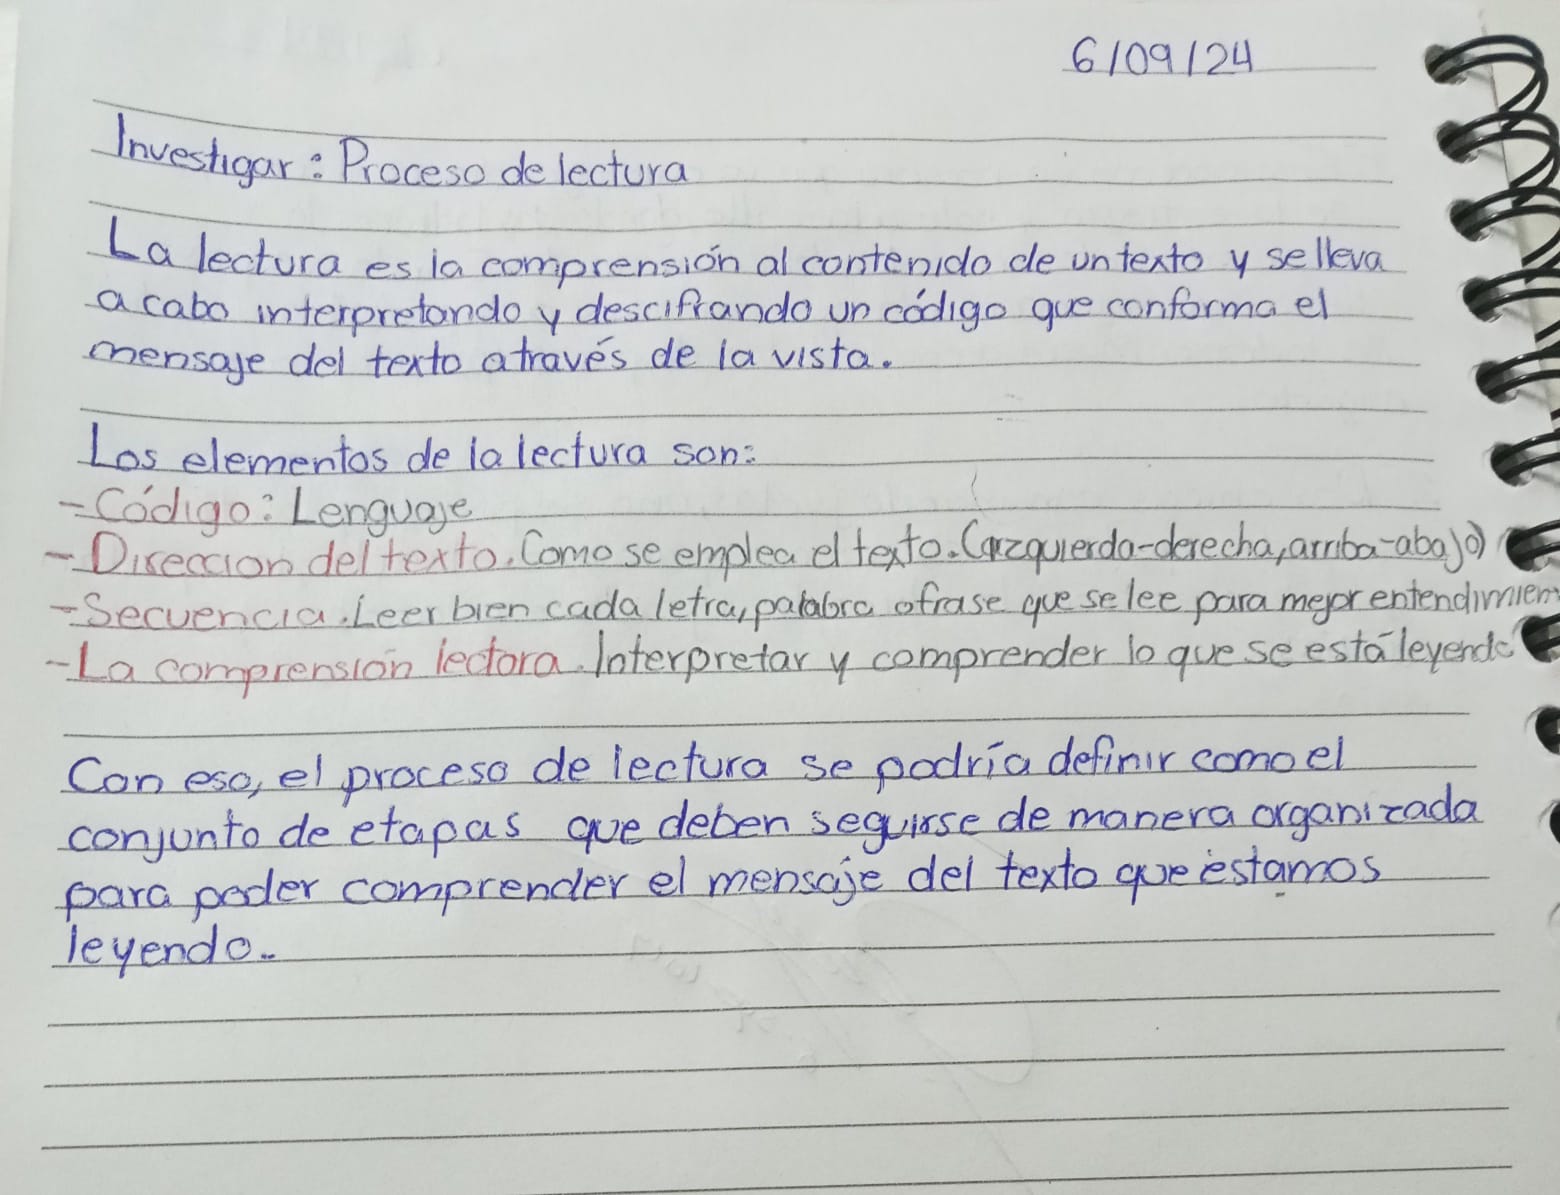 6/09/24
Investigar: Proceso de lectura
La lectura es la comprensión al contenido de un texto y se lleva
a cabo interpretando y descifrando un código que conforma el
mensaje del texto a través de la vista.
Los elementos de la lectura son:
- Código: Lenguaje
- Direccion del texto. Como se emplea el texto. (izquierda-derecha, arriba-abajo)
- Secuencia. Leer bien cada letra, palabra o frase que se lee para mejor entendimien
- La comprensión lectora. Interpretar y comprender lo que se está leyendo
Con eso, el proceso de lectura se podría definir como el
conjunto de etapas que deben seguirse de manera organizada
para poder comprender el mensaje del texto que estamos
leyendo.